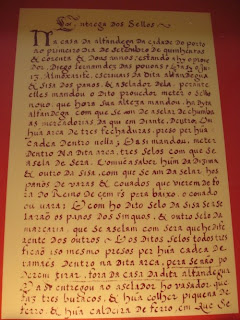 Por entrega dos Sellos
Na casa da alfandega da cidade do porto
ao primeiro dia de setembro de quinhentos
e corenta & dous annos estando
Diego fernandez das povoas
Almoxarife, escrivais da Dita alfandegua
& Sisa dos panos & aselador dela, perante
elles mandou o Dito proueador, meter o Sello
nouo, que hora Sua alteza mandou, ha Dita
alfandega com que se am de aselar de chumbo
as mercadorias, da qui em Diante, Dentro, Em
húa arca de tres fechaduras, preso per húa
cadea Dentro nella, & asi mandou, meter
Dentro Na Dita arca, tres Sellos com que se
asela de Sera. Comuẽ a saber hum da Dizima
& outro da Sisa, com que se am da selar hos
panos de varas & couados que vierem de fora
do Reino de cem rs pera baixo o couado
ou vara: E com ho Dito Selo da Sisa se se
larão os panos dos Sinquos, & outro Selo da
marcaria, que se aselam com sera que he dife
rente dos outros. E os Ditos Selos todos tres
ficão iso mesmo presos per húa cadea de
aramem Dentro na Dita arca, pera se não po
derem tirar, fora da casa da Dita alfandegua
E asi entregou ao aselador ho vasador que
faz tres buracos, & húa colher piquena de
ferro, & húa caldeira de ferro, em que se